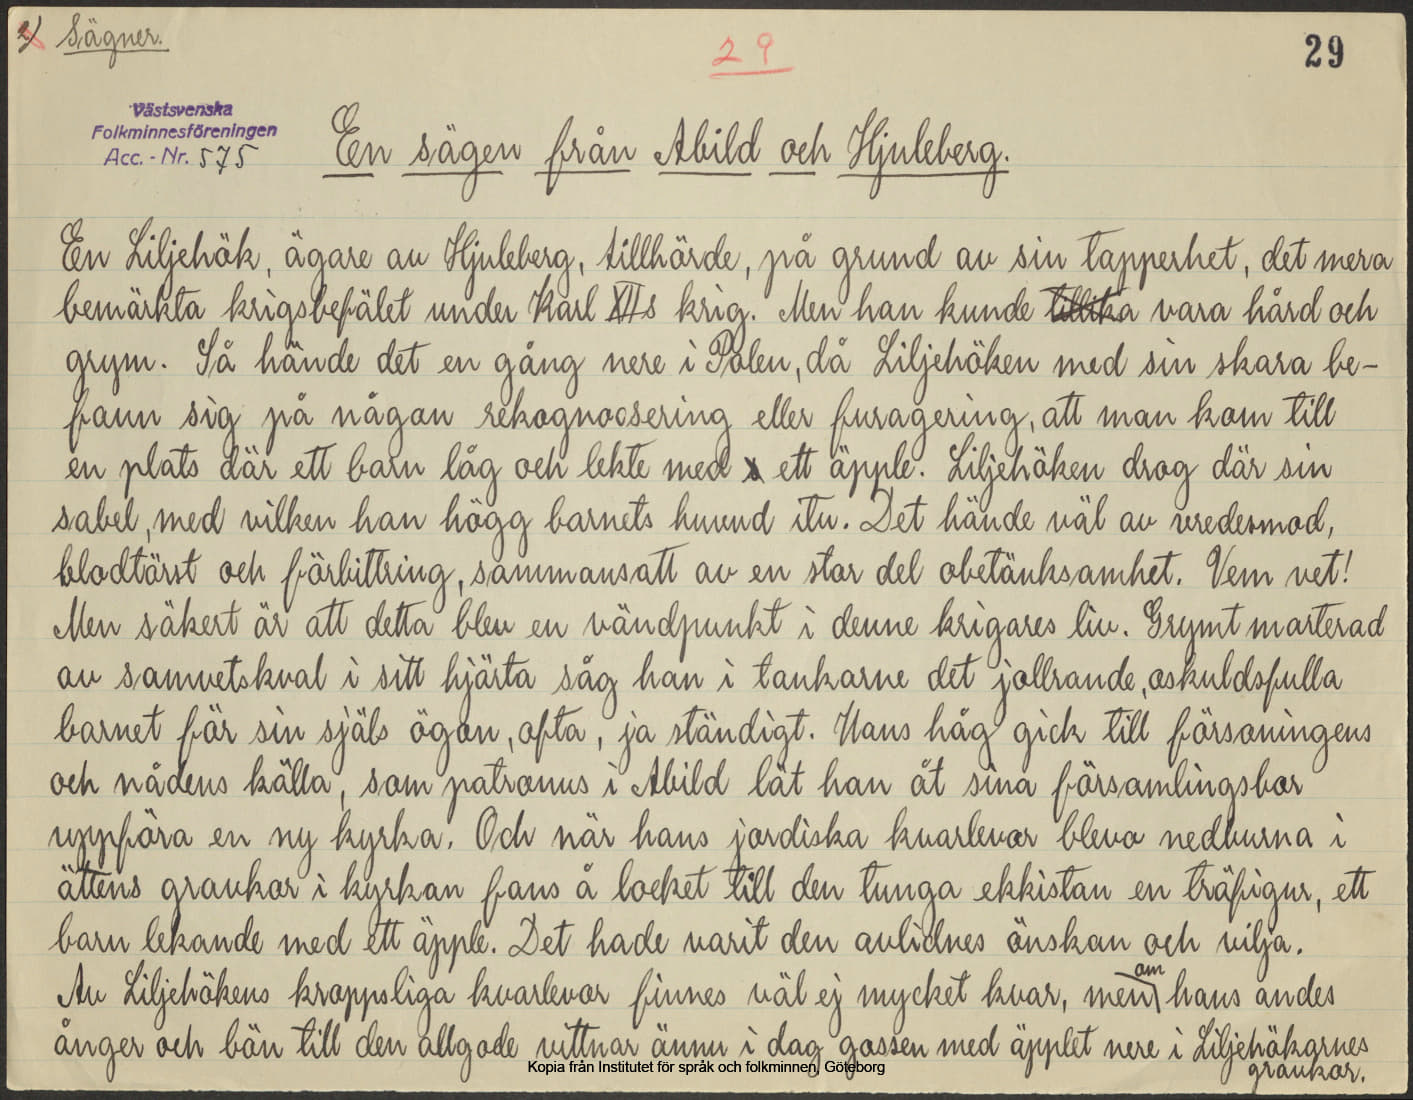 2) Sägner.
29
29
Västsvenska
Folkminnesföreningen
Acc. - Nr. 575
En sägen från Abild och Hjuleberg.
En Liljehök, ägare av Hjuleberg, tillhörde, på grund av sin tapperhet, det mera
bemärkta krigsbefälet under Karl XIIs krig. Men han kunde tillika vara hård och
grym. Så hände det en gång nere i Polen, då Liljehöken med sin skara be-
fann sig på någon rekognoscering eller furagering, att man kom till
en plats där ett barn låg och lekte med ett äpple. Liljehöken drog där sin
sabel, med vilken han högg barnets huvud itu. Det hände väl av vredesmod,
blodtörst och förbittring, sammansatt av en stor del obetänksamhet. Vem vet!
Men säkert är att detta blev en vändpunkt i denne krigares liv. Grymt marterad
av samvetskval i sitt hjärta såg han i tankarne det jollrande, oskuldsfulla
barnet för sin själs ögon, ofta, ja ständigt. Hans håg gick till försoningens
och nådens källa, som patronus i Abild lät han åt sina församlingsbor
uppföra en ny kyrka. Och när hans jordiska kvarlevor blevo nedburna i
ättens gravkor i kyrkan fans å locket till den tunga ekkistan en träfigur, ett
barn lekande med ett äpple. Det hade varit den avlidnes önskan och vilja.
Av Liljehökens kroppsliga kvarlevor finnes väl ej mycket kvar, men om hans andes
ånger och bön till den allgode vittnar ännu i dag gossen med äpplet nere i Liljehökarnes
gravkor.
Kopia från Institutet för språk och folkminnen, Göteborg